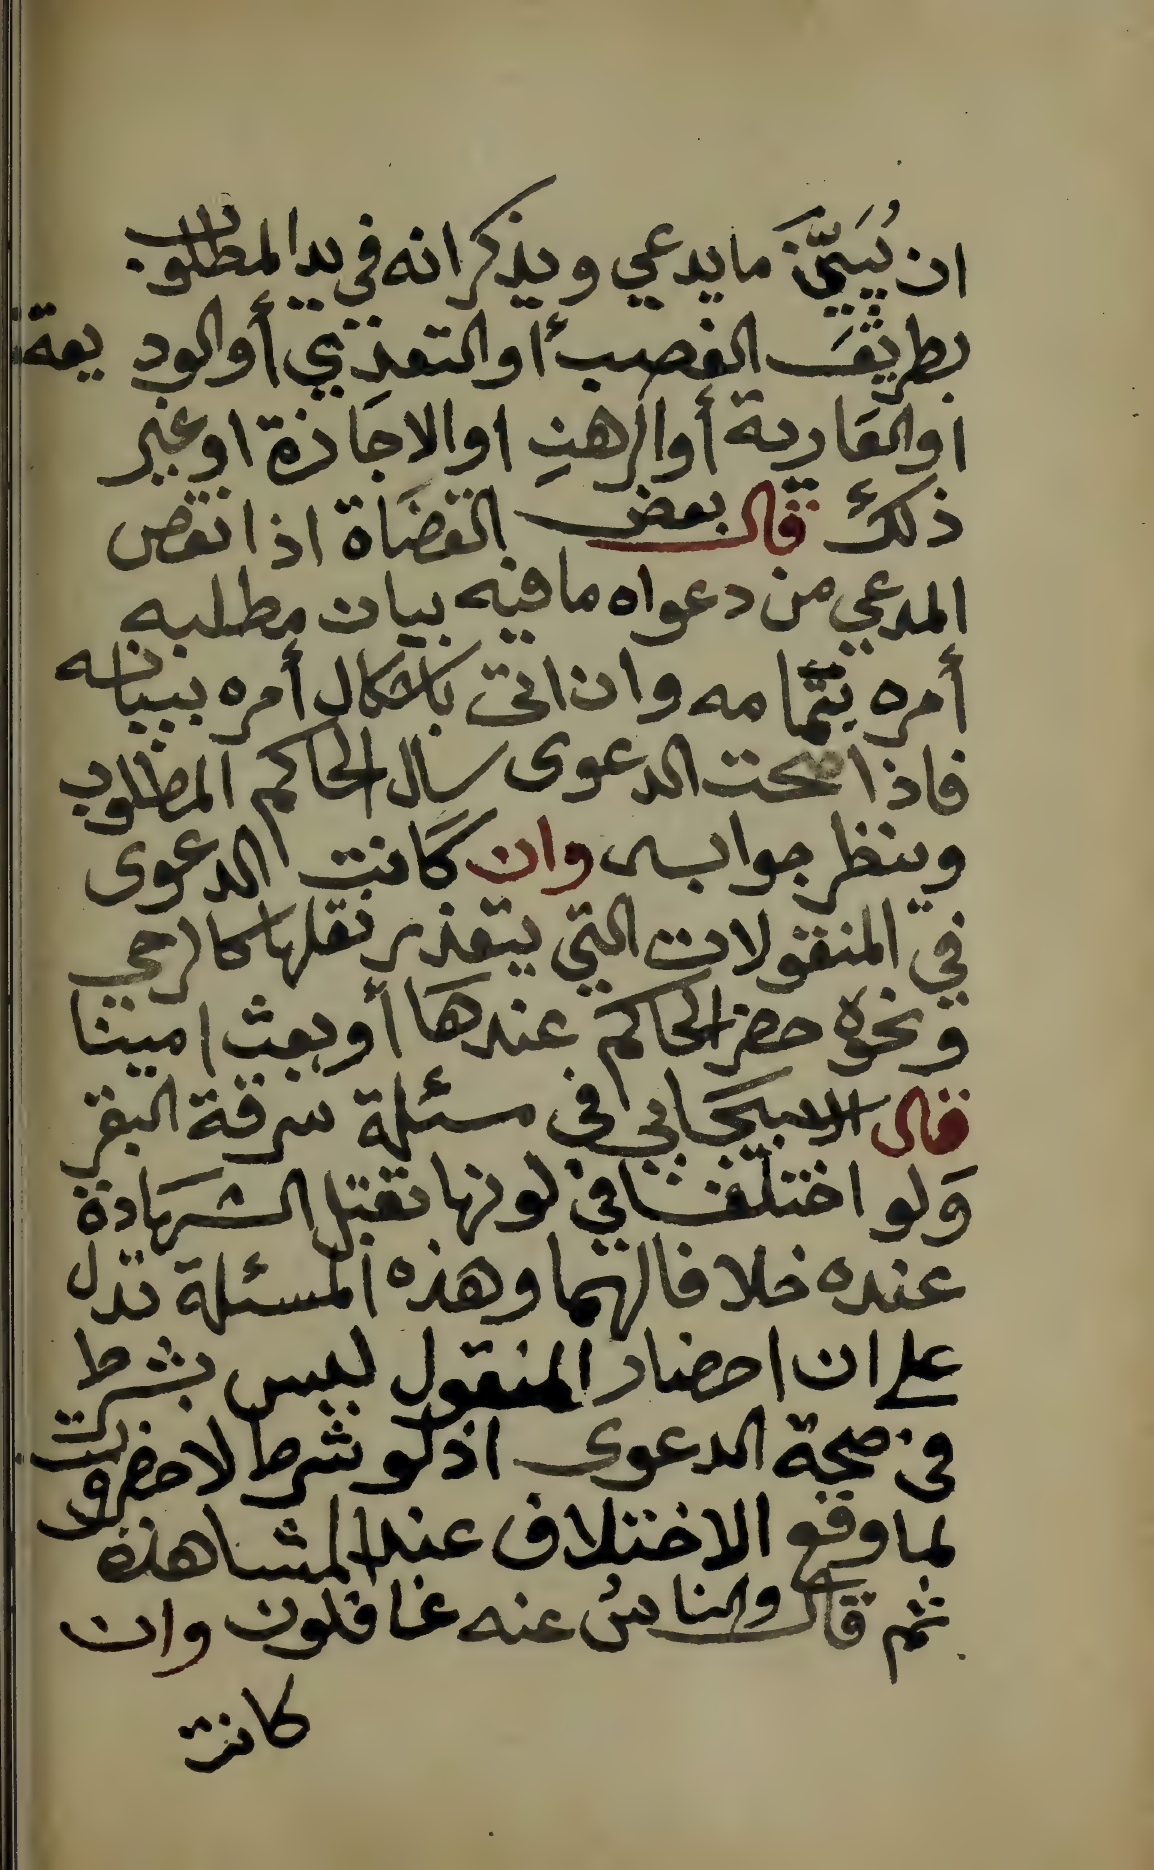 ان يُبَيِّنَ ما يدعي ويذكر انه في يد المطلوب
بطريقَ الغصب أو التعدِّي أو الوديعة
او العَارية أو الرهنِ او الاجَازة او غير
ذلك قال بعض القضَاة اذا نقص
المدعي من دعواه ما فيه بيان مطلبه
أمره بتمامه وان اتى باشكال أمره ببيانه
فاذا صحت الدعوى سال الحاكم المطلوب
وينظر جوابه وان كانت الدعوى
في المنقولات التي يتعذر نقلها كالرحي
ونحوه حضر الحاكم عندها أو بعث امينا
قال الاسبيجابي في مسئلة سرقة البقر
وَلو اختلفا في لونها تقبل الشهادة
عنده خلافا لهما وهذه المسئلة تدل
على ان احضار المنقول ليس بشرط
في صحة الدعوى اذ لو شرط لاحضرت و
لما وقع الاختلاف عند المشاهدة
ثم قال والناسُ عنه غافلون وان
كانت